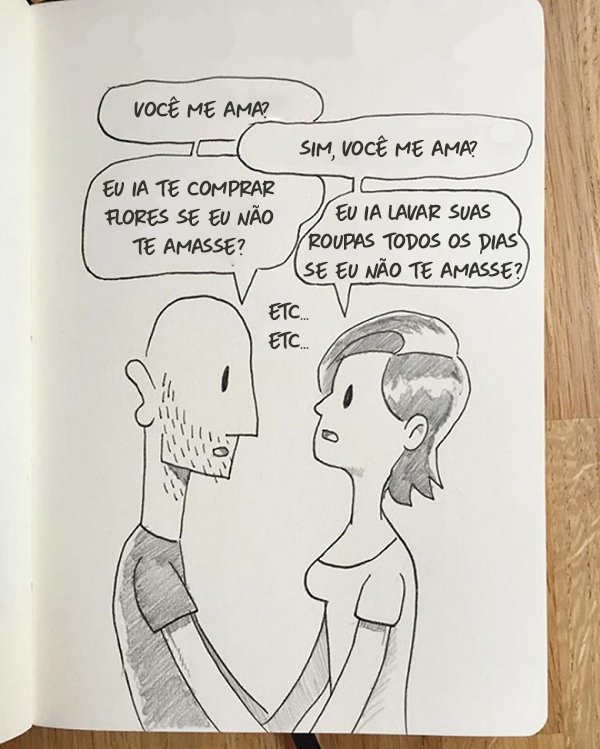 VOCÊ ME AMA?
SIM, VOCÊ ME AMA?
EU IA TE COMPRAR
FLORES SE EU NÃO
TE AMASSE?
EU IA LAVAR SUAS
ROUPAS TODOS OS DIAS
SE EU NÃO TE AMASSE?
ETC...
ETC...